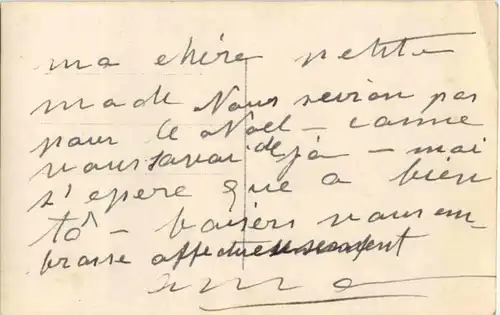 ma chère petite
made Nous sevion pas
pour le Noel - comme
vous savai deja - mai
s'epere que a bien
tô - baisers vous em-
brasse affectueusement